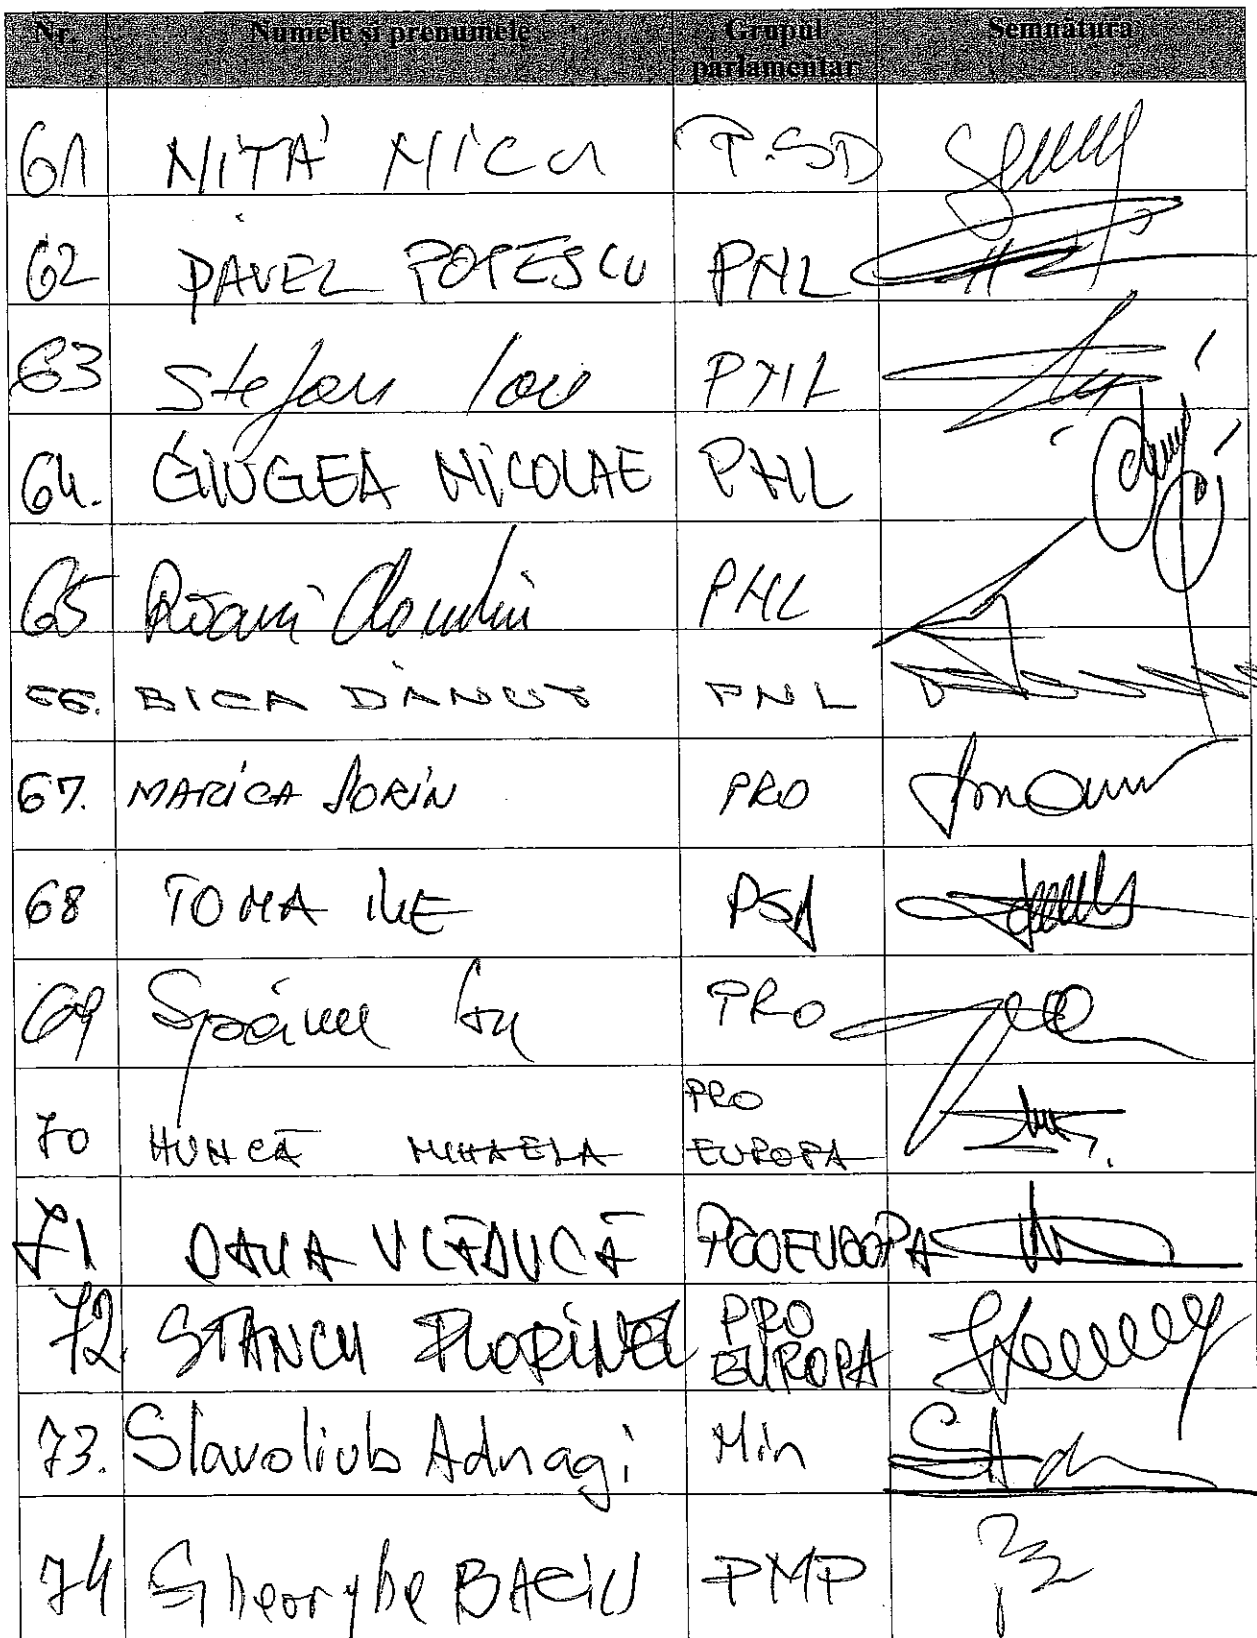 Nr. Numele si prenumele Grupul parlamentar Semnătura
61 NIȚĂ NICU P.SD
62 PAVEL POPESCU PNL
63 Stefan Ioan PNL
64. GIUGEA NICOLAE PNL
65 PNL
66. BICA DĂNUȚ PNL
67. MARICA SORIN PRO
68 TOMA ILIE PSD
69 Spânu Ion PRO
70 HUNCĂ MIHAELA PRO EUROPA
71 OANA VLĂDUCĂ PROEUROPA
72. STANCU FLORINEL PRO EUROPA
73. Slavoliub Adnagi Min
74 Gheorghe BACIU PMP